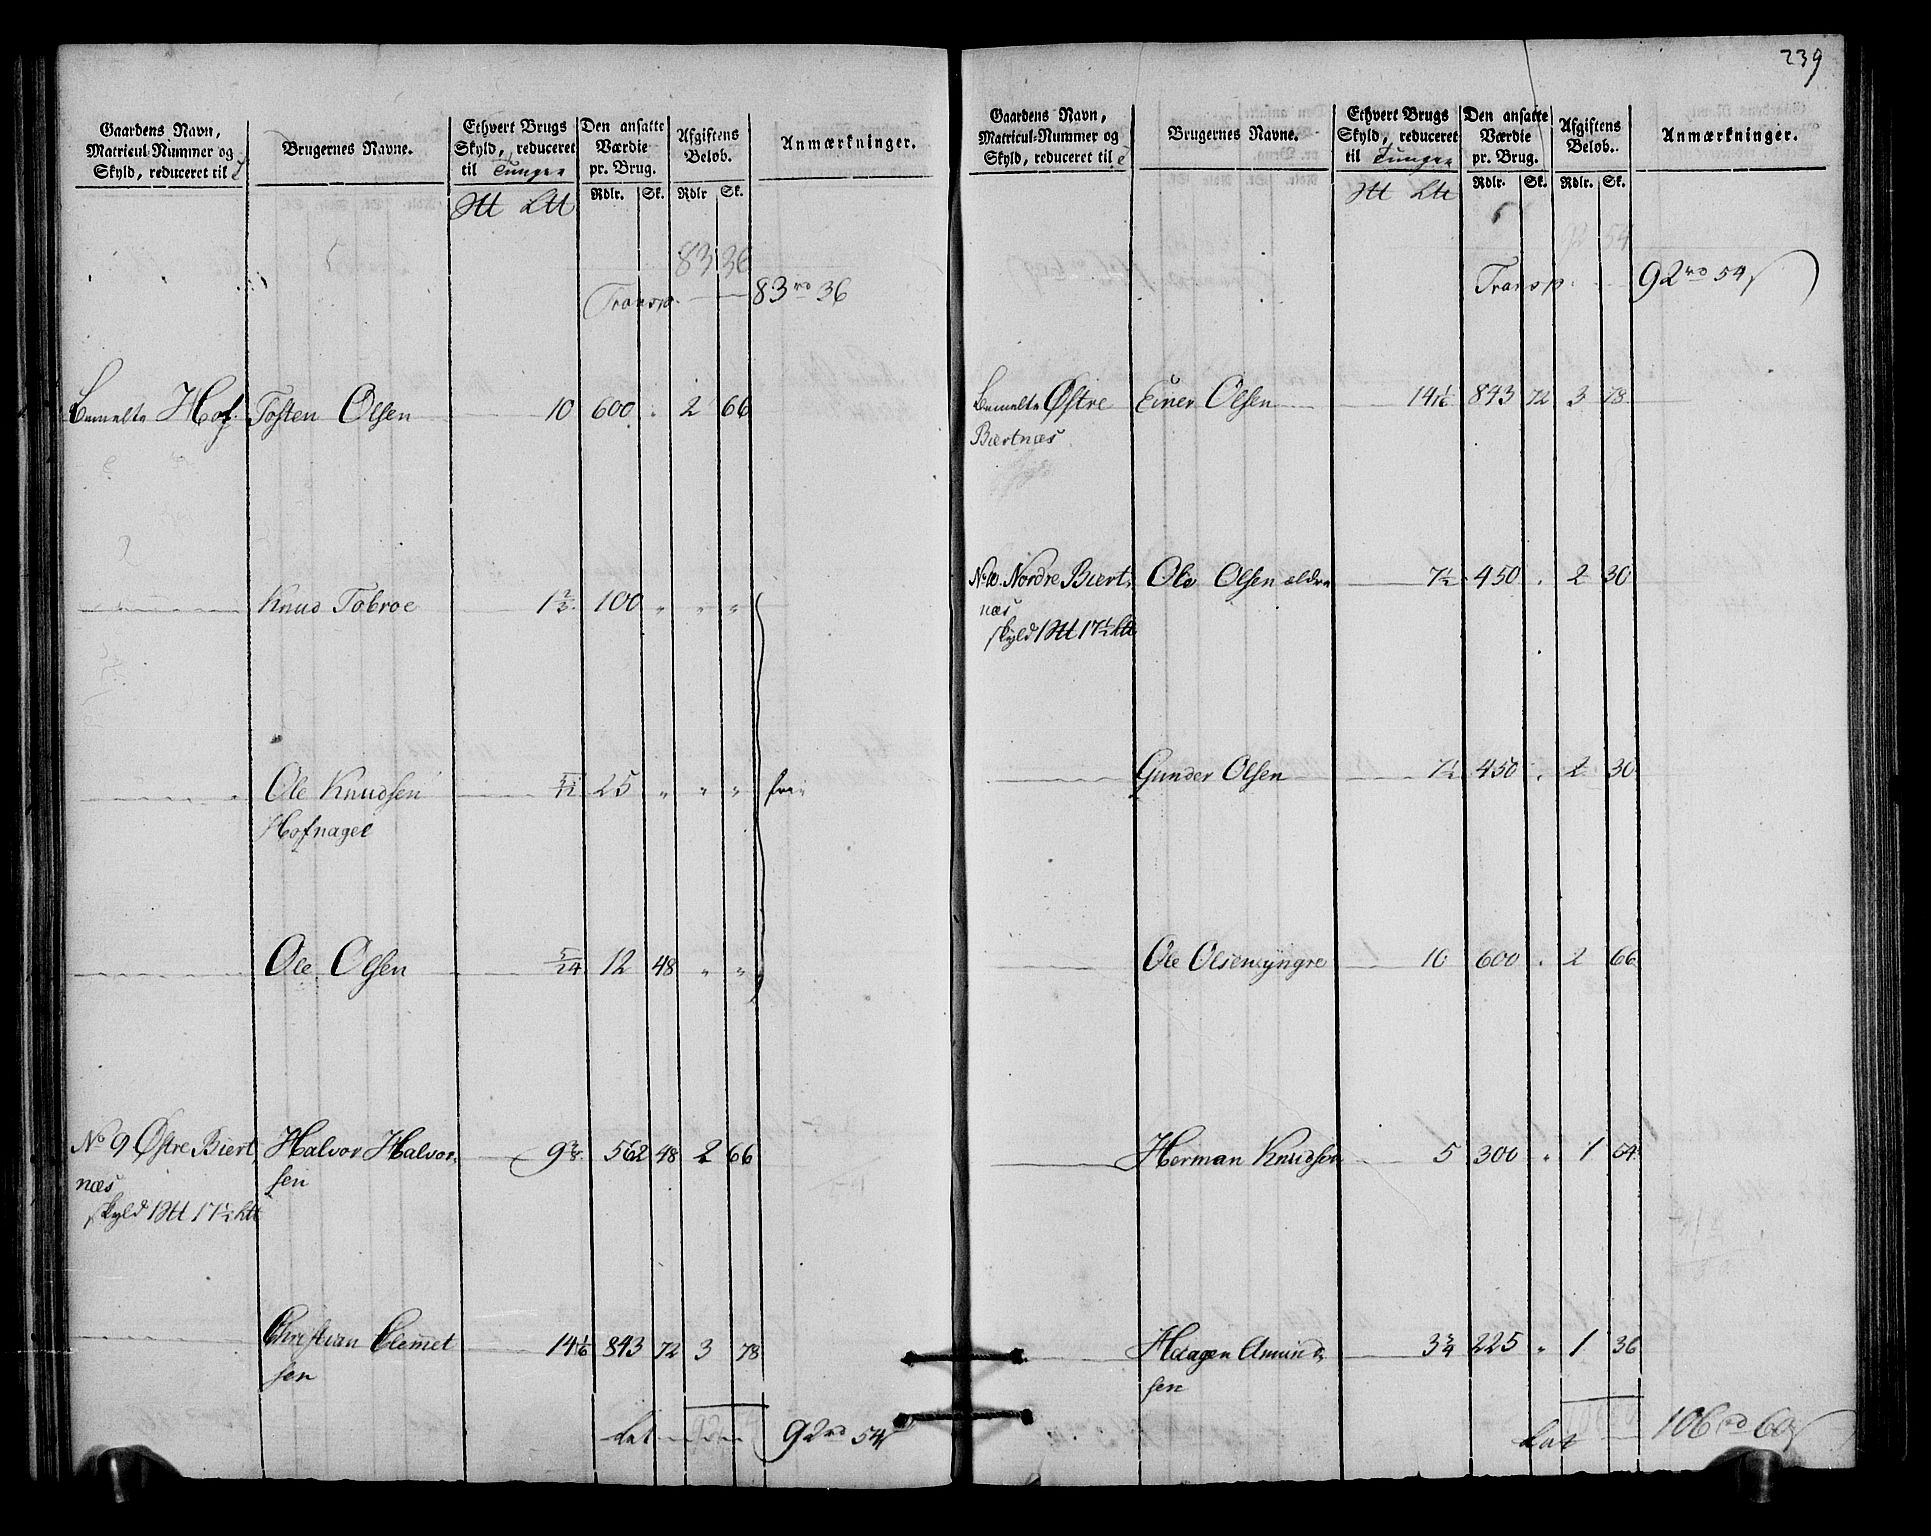 Gaardens Navn, Matricul-Nummer og Skyld, reduceret til | Brugernes Navne. | Ethvert Brugs Skyld, reduceret til Tunge | Den ansatte Værdie pr. Brug. | Afgiftens Beløb. | Anmærkninger.
Rdlr. Sk. Rdlr Sk.
83 36
Transp. 83 rd 36
bemelte Hof. Tosten Olsen 10 600 . 2 66
Knud Tobroe 1 2/3 100 " " "
Ole Knudsen 5/12 25 " " " frie
Hofnagel
Ole Olsen 5/24 12 48 " "
No 9 Østre Biert, Halvor Halvor, 9 3/8 562 48 2 66
næs sen
skyld 1 17 1/2
Christian Clemmet 14 1/16 843 72 3 78
sen
Lat 92 rd 54
239
Gaardens Navn, Matricul-Nummer og Skyld, reduceret til | Brugernes Navne. | Ethvert Brugs Skyld, reduceret til Tunge | Den ansatte Værdie pr. Brug. | Afgiftens Beløb. | Anmærkninger.
Rdlr. Sk. Rdlr. Sk.
92 54
Transp. 92 rd 54
bemelte Østre Einer Olsen 14 1/16 843 72 3 78
Biertnæs
No 10. Nordre Biert, Ole Olsen ældre 7 1/2 450 . 2 30
næs
skyld 1 17 1/2
Gunder Olsen 7 1/2 450 . 2 30
Ole Olsen yngre 10 600 . 2 66
Herman Knudsen 5 300 " 1 54
Haagen Amund 3 3/4 225 " 1 36
sen
Lat 106 rd 60